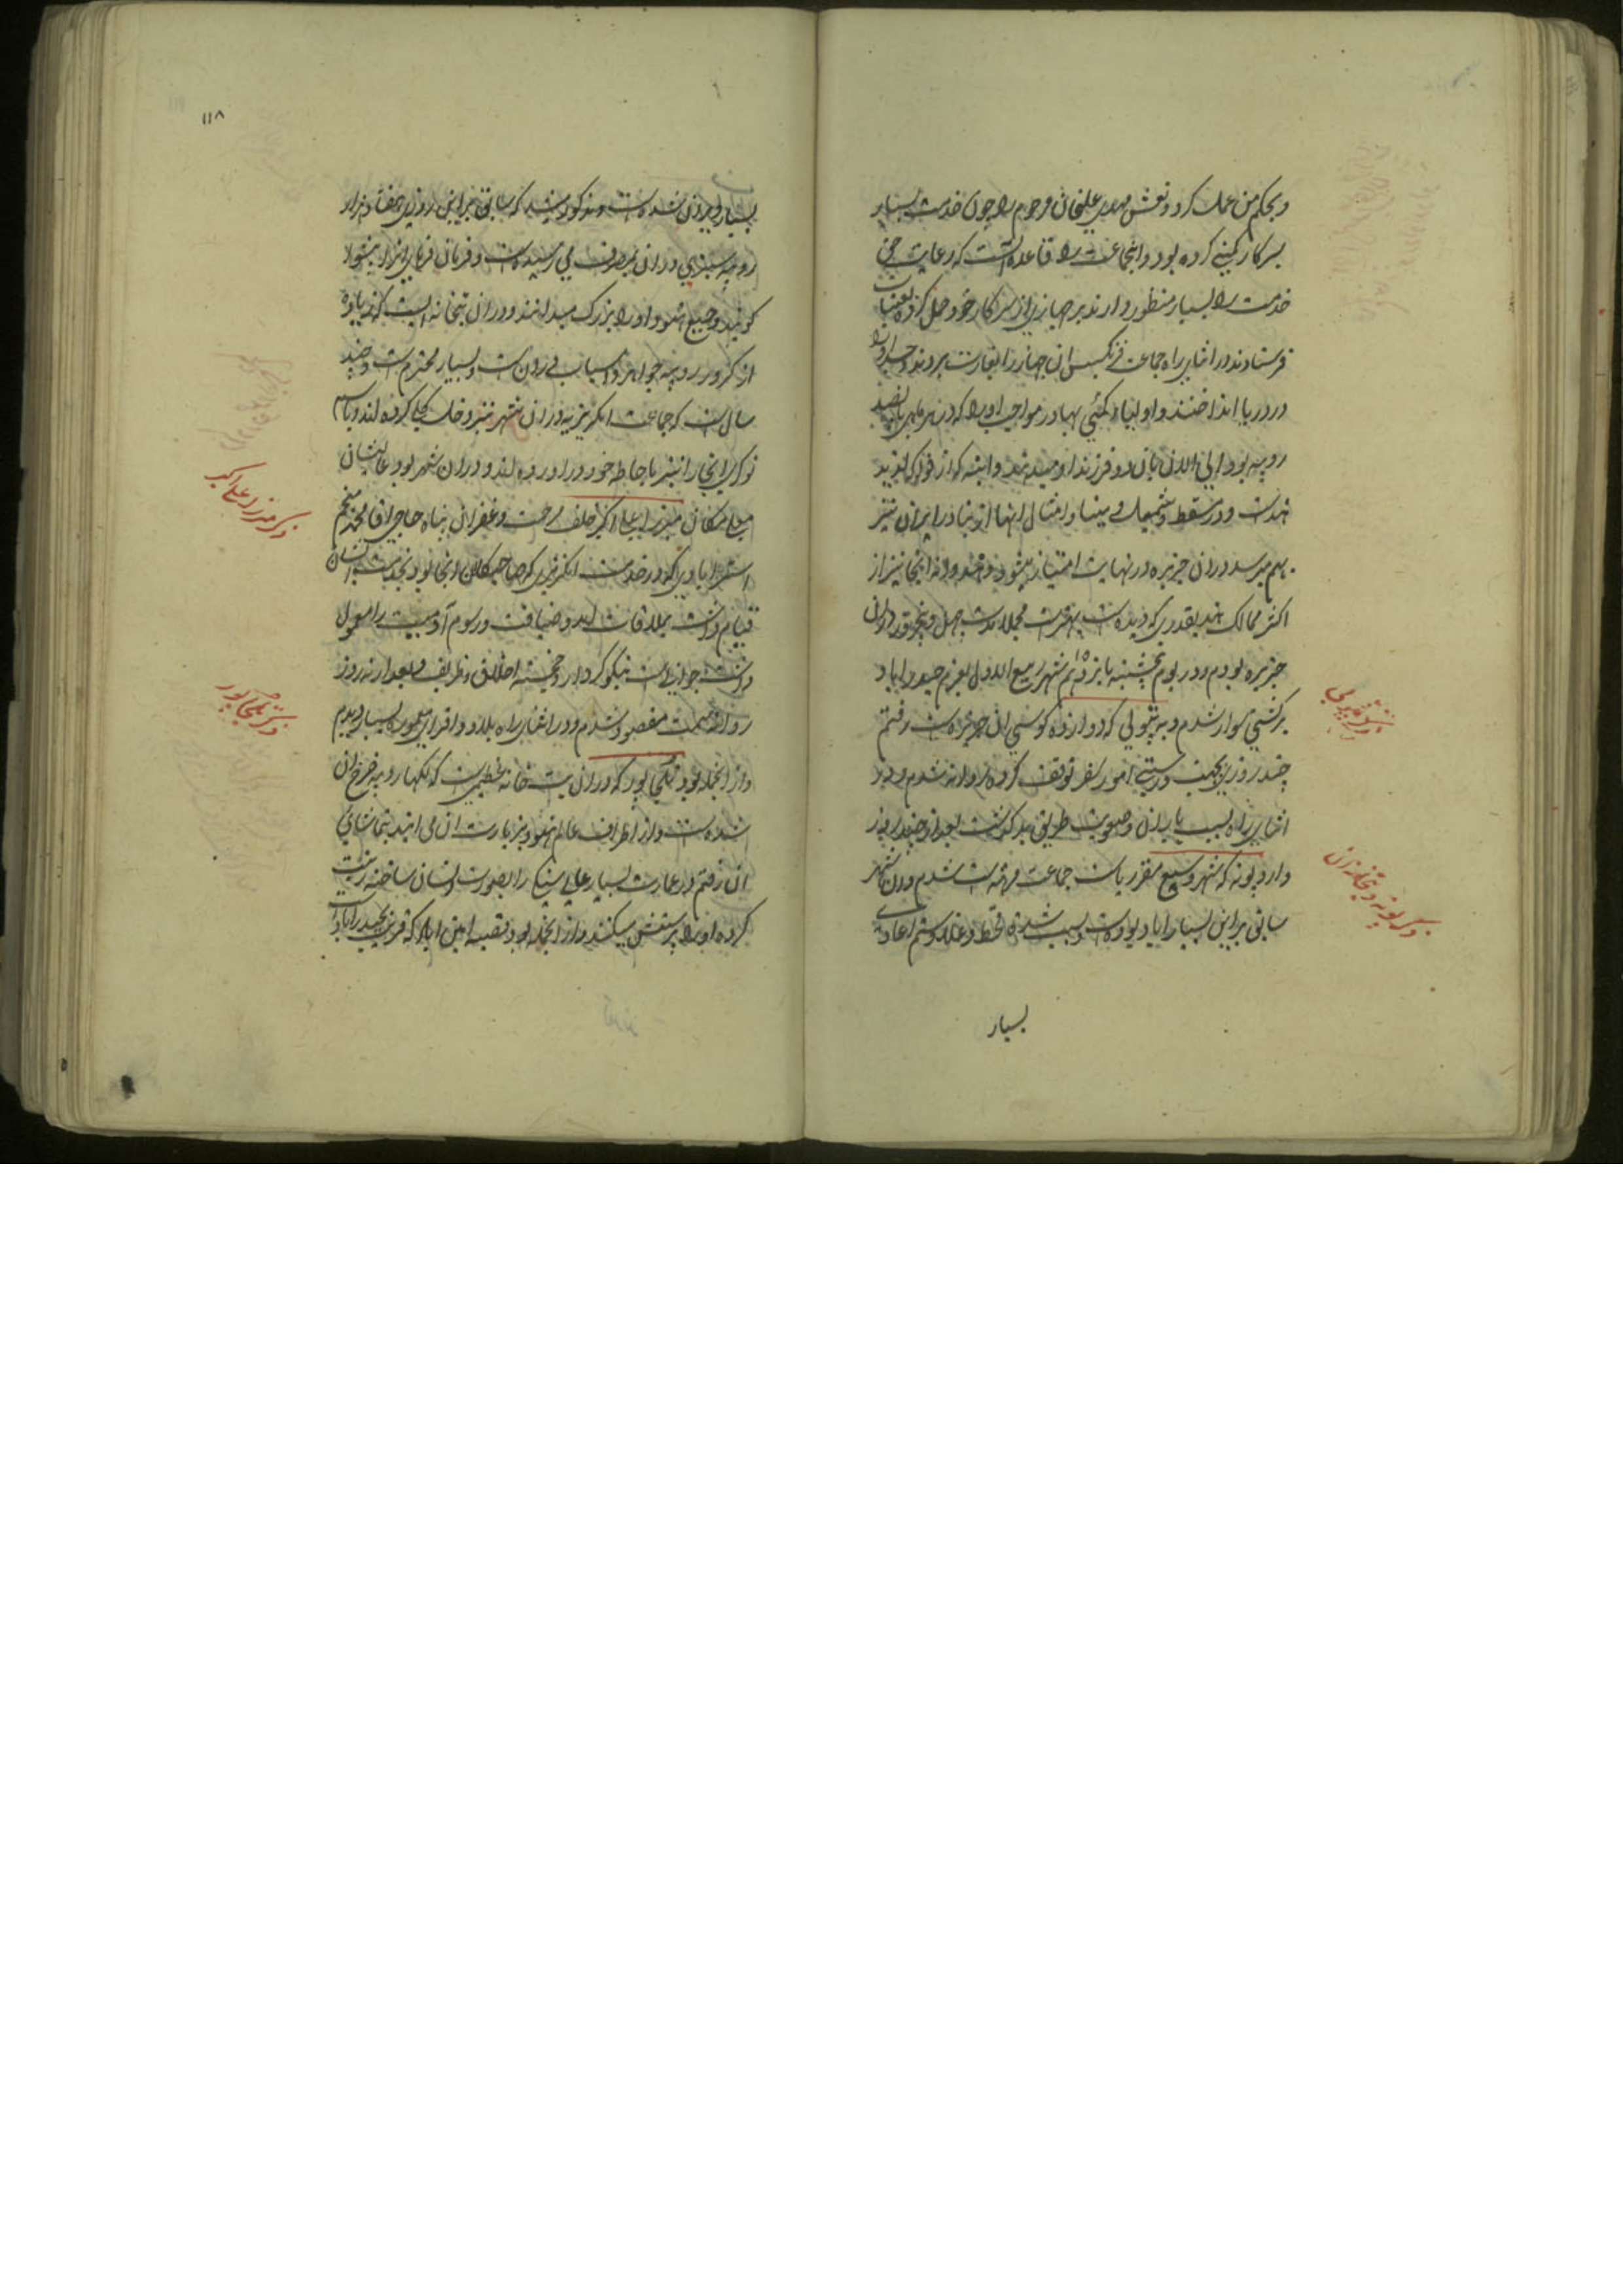 و بحکم من عمل کرد و نعش مهدی علیخان مرحوم را چون خدمت بسیار
بسرکار کمپنی کرده بود و اینجماعت را قاعده است که رعایت حق
خدمت را بسیار منظور دارند بر جهازی از سرکار خود حمل کرده بعتبات
فرستادند در اثنای راه جماعت فرنگیس آن جهاز را بغارت بردند و جسد او را
در دریا انداختند و اولیاء کمپنی بهادر مواجب او را که در هر ماهی پانصد
روپیه بود الی الان بآن دو فرزند او میدهند و انبه که از فواکه لذیذ
هند است و در مسقط و شمیل و مینا و امثال اینها از بنادر ایران نیز
بهم میرسد در آن جزیره در نهایت امتیاز میشود و هندوانه آنجا نیز از
اکثر ممالک هند بقدری که دیده است بهتر است مجملا مدت چهل و پنجروز در آن
جزیره بودم و در یوم پنجشنبه پانزدهم ۱۵ شهر ربیع الاول بعزم حیدراباد
بر کشتی سوار شدم و به پنولی که دوازده کوسی آن جزیره است رفتم
چند روزی بجهت درستی امور سفر توقف کرده روانه شدم و در
اثنای راه بسبب باران و صعوبت طریق بد گذشت بعد از چند روز
وارد پونه که شهر وسیع مقر ریاست جماعت مرهته است شدم و آن شهر
سابق بر این بسیار آباد بوده است و بسبب شدة قحط و غلا و ستم اعادی
بسیار
ذکر پنولی
ذکر پونه و بتخانه آن
۱۱۸
بسیار ویران شده است و مذکور میشد که سابق بر این روزی هفتاد هزار
روپیه سبزی در آن بمصرف می رسیده است و فرمان فرمای آنرا پیشوا
گویند و جمیع هنود او را بزرگ میدانند و در آن بتخانه ایست که زیاده
از کرور روپیه جواهر و اسباب در آن است و بسیار محترم است و چند
سال است که جماعت انگریزیه در آن شهر نیز دخل کلی کرده اند و تمام
نوکری آنجا را نیز باحاطه خود در آورده اند و در آن شهر بود عالیشان
معلی مکان میرزا علی اکبر خلف رحمت و غفران پناه حاجی آقا محمد منجم
استرابادی که در خدمت انگریزی که صاحب کلان آنجا بود بخدمت انشا
قیام داشت بملاقات آمد و ضیافت و رسوم آدمیت را معمول
داشت جوانی است نیکو کردار و خجسته اخلاق و ظریف و بعد از نه روز
روانه سمت مقصود شدم و در اثنای راه بلاد و اقرای معموره بسیار دیدم
و از آنجمله بود تلجاپور که در آن بت خانه عظیمی است که لکها روپیه خرج آن
شده است و از اطراف عالم هنود بزیارت آن می آیند بتماشای
آن رفتم در عمارت بسیار عالی سنگی را بصورت انسان ساخته زینت
کرده او را پرستش میکنند و از آنجمله بود قصبه امین اباد که قریب بحیدراباد است
ذکر میرزا علی اکبر
ذکر تلجاپور